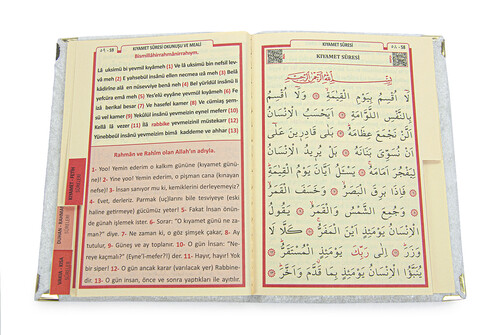 KIYAMET SÛRESİ OKUNUŞU VE MEALİ
Bismillâhirrahmânirrahıym.
Lâ uksimü bi yevmil kıyâmeh (1) Ve lâ uksimü bin nefsil lev-
vâmeh (2) E yahsebül insânü ellen necmea ızâmeh (3) Belâ
kâdirîne alâ en nüsevviye benâneh (4) Bel yürîdül insânü li
yefcüra emâmeh (5) Yes'elü eyyâne yevmül kıyâmeh (6) Fe
izâ berikal besar (7) Ve hasefel kamer (8) Ve cümiaş şem-
sü vel kamer (9) Yekûlül insânü yevmeizin eynel meferr (10)
Kellâ lâ vezer (11) İlâ rabbike yevmeizinil müstekarr (12)
Yünebbeül insânü yevmeizim bimâ kaddeme ve ahhar (13)
Rahmân ve Rahîm olan Allah'ın adıyla.
1- Yoo! Yemin ederim o kalkım gününe (kıyamet günü-
ne)! 2- Yine yoo! Yemin ederim, o pişman cana (kınayan
nefse)! 3- İnsan sanıyor mu ki, kemiklerini derlemeyiz?
4- Evet, derleriz. Parmak (uç)larını bile tesviyeye (eski
haline getirmeye) gücümüz yeter! 5- Fakat İnsan önün-
de günah işlemek ister 6- Sorar: "O kıyamet günü ne za-
man?" diye. 7- Ne zaman ki, o göz şimşek çakar, 8- Ay
tutulur, 9- Güneş ve ay toplanır. 10- O gün İnsan: "Ne-
reye kaçmalı?" (Eyne'l-mefer?!) der. 11- Hayır, hayır! Yok
bir siper! 12- O gün ancak karar (varılacak yer) Rabbine-
dir. 13- O gün insan, önce ve sonra yaptıkları ile ayıtılır.
KIYAMET - FETİH
DUHAN - RAHMAN
VAKIA - KISA
KIYAMET SÛRESİ
٥٨ - 58
KIYAMET SÛRESİ
بِسْمِ اللّٰهِ الرَّحْمٰنِ الرَّحِيمِ
لَا اُقْسِمُ بِيَوْمِ الْقِيٰمَةِ ۞ وَلَا اُقْسِمُ
بِالنَّفْسِ اللَّوَّامَةِ ۞ اَيَحْسَبُ الْاِنْسَانُ
اَلَّنْ نَجْمَعَ عِظَامَهُ ۞ بَلٰى قَادِرِينَ عَلٰى
اَنْ نُسَوِّيَ بَنَانَهُ ۞ بَلْ يُرِيدُ الْاِنْسَانُ
لِيَفْجُرَ اَمَامَهُ ۞ يَسْـَٔلُ اَيَّانَ يَوْمُ الْقِيٰمَةِ
۞ فَاِذَا بَرِقَ الْبَصَرُ ۞ وَخَسَفَ الْقَمَرُ
۞ وَجُمِعَ الشَّمْسُ وَالْقَمَرُ ۞ يَقُولُ
الْاِنْسَانُ يَوْمَئِذٍ اَيْنَ الْمَفَرُّ ۞ كَلَّا لَا
وَزَرَ ۞ اِلٰى رَبِّكَ يَوْمَئِذٍ الْمُسْتَقَرُّ ۞
يُنَبَّؤُا الْاِنْسَانُ يَوْمَئِذٍ بِمَا قَدَّمَ وَاَخَّرَ ۞